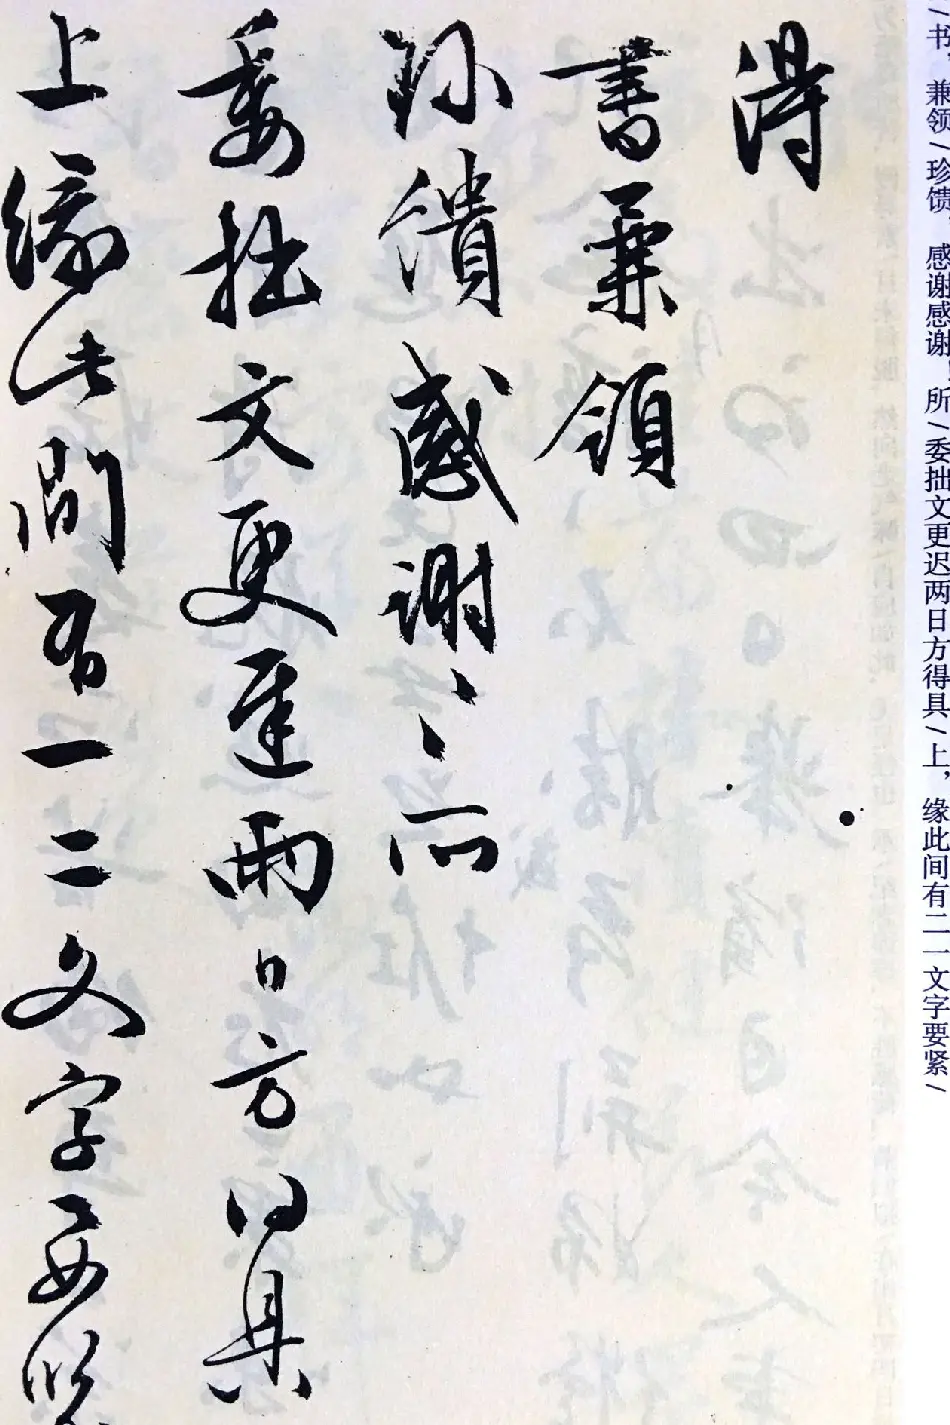 得
書兼領
珎饋感謝〻所
委拙文更遲兩日方得具
上緣此間有一二文字要緊
/书，兼领/珍馈，感谢感谢！所/委拙文更迟两日方得具/上，缘此间有二一文字要紧/